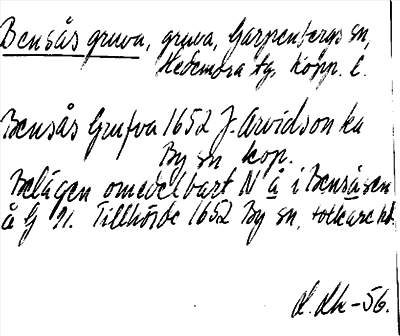 Bensås gruva, gruva, Garpenbergs sn,
Hedemora tg. Kopp. l.
Bensås Grufva 1652 J. Arvidson ka
By sn kop.
Belägen omedelbart N å i Bensåsen
å G 91. Tillhörde 1652 By sn,
-56.